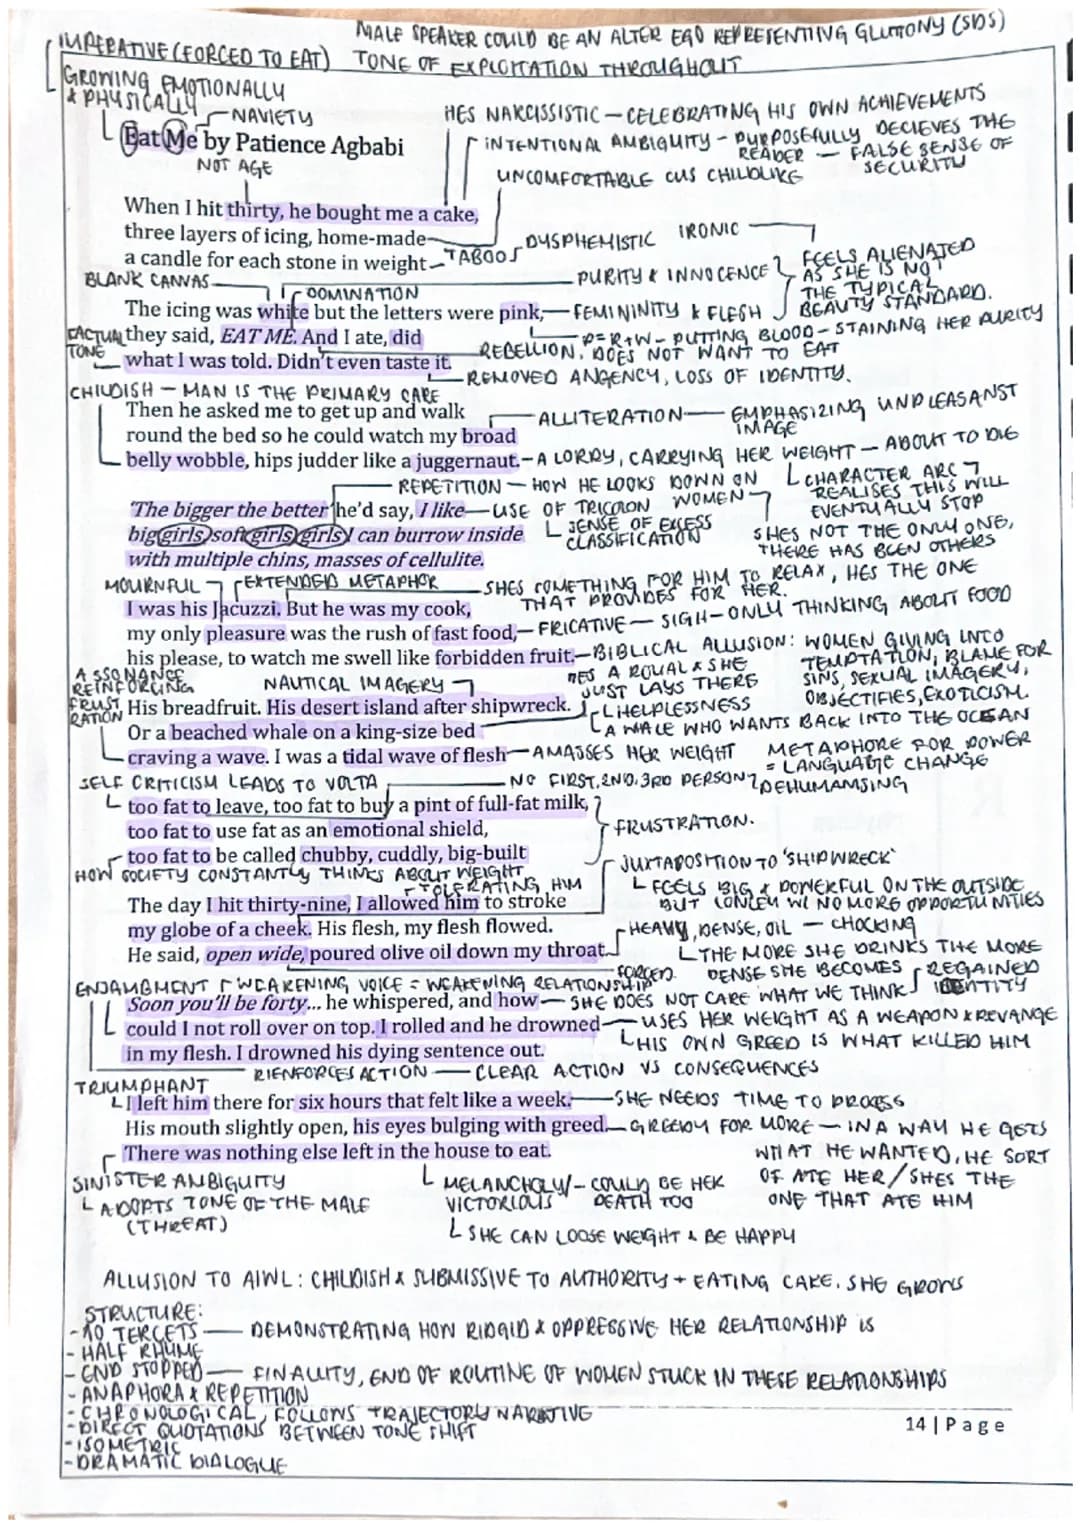 MALE SPEAKER COULD BE AN ALTER EGO REPRESENTING GLUTTONY (SDS)
IMPERATIVE (FORCED TO EAT) TONE OF EXPLOITATION THROUGHOUT
GROWING EMOTIONALLY
& PHYSICALLY
NAVIETY
HES NARCISSISTIC — CELEBRATING HIS OWN ACHIEVEMENTS
Eat Me by Patience Agbabi
INTENTIONAL AMBIGUITY - PURPOSEFULLY DECIEVES THE
READER — FALSE SENSE OF
SECURITY
NOT AGE
UNCOMFORTABLE CUS CHILDLIKE
When I hit thirty, he bought me a cake,
three layers of icing, home-made
a candle for each stone in weight
TABOO
DYSPHEMISTIC IRONIC
FEELS ALIENATED
AS SHE IS NOT
THE TYPICAL
BEAUTY STANDARD.
BLANK CANVAS
DOMINATION
PURITY & INNOCENCE
The icing was white but the letters were pink,
FEMININITY & FLESH
P=R+W - PUTTING BLOOD - STAINING HER PURITY
FACTUAL
TONE
they said, EAT ME. And I ate, did
what I was told. Didn't even taste it.
REBELLION. DOES NOT WANT TO EAT
REMOVED ANGENCY, LOSS OF IDENTITY.
CHILDISH — MAN IS THE PRIMARY CARE
Then he asked me to get up and walk
round the bed so he could watch my broad
belly wobble, hips judder like a juggernaut.
ALLITERATION — EMPHASIZING UNPLEASANST
IMAGE
A LORRY, CARRYING HER WEIGHT — ABOUT TO DIE
REPETITION — HOW HE LOOKS DOWN ON
WOMEN
CHARACTER ARC
REALISES THIS WILL
EVENTUALLY STOP
'The bigger the better he'd say, I like
big girls, soft girls, girls I can burrow inside
with multiple chins, masses of cellulite.
USE OF TRICOLON
SENSE OF EXCESS
CLASSIFICATION
SHES NOT THE ONLY ONE,
THERE HAS BEEN OTHERS
MOURNFUL
EXTENDED METAPHOR
SHES SOMETHING FOR HIM TO RELAX, HES THE ONE
THAT PROVIDES FOR HER.
I was his Jacuzzi. But he was my cook,
my only pleasure was the rush of fast food,
his please, to watch me swell like forbidden fruit.
FRICATIVE — SIGH — ONLY THINKING ABOUT FOOD
BIBLICAL ALLUSION: WOMEN GIVING INTO
TEMPTATION, BLAME FOR
SINS, SEXUAL IMAGERY,
OBJECTIFIES, EXOTICISM.
ASSONANCE
REINFORCING
FRUST
RATION
NAUTICAL IMAGERY
HES A ROYAL & SHE
JUST LAYS THERE
His breadfruit. His desert island after shipwreck.
Or a beached whale on a king-size bed
craving a wave. I was a tidal wave of flesh
HELPLESSNESS
A WALE WHO WANTS BACK INTO THE OCEAN
AMASSES HER WEIGHT
METAPHORE FOR POWER
= LANGUAGE CHANGE
SELF CRITICISM LEADS TO VOLTA
NO FIRST, 2ND, 3RD PERSON
DEHUMAMSING
too fat to leave, too fat to buy a pint of full-fat milk,
too fat to use fat as an emotional shield,
too fat to be called chubby, cuddly, big-built
FRUSTRATION.
JUXTAPOSITION TO 'SHIPWRECK'
FEELS BIG & POWERFUL ON THE OUTSIDE
BUT LONLEY W/ NO MORE OPPORTUNITIES
HOW SOCIETY CONSTANTLY THINKS ABOUT WEIGHT
TOLERATING HIM
The day I hit thirty-nine, I allowed him to stroke
my globe of a cheek. His flesh, my flesh flowed.
He said, open wide, poured olive oil down my throat.
HEAVY, DENSE, OIL — CHOCKING
THE MORE SHE DRINKS THE MORE
DENSE SHE BECOMES
FORCED
REGAINED
IDENTITY
ENJAMBMENT
WEAKENING VOICE = WEAKENING RELATIONSHIP
Soon you'll be forty... he whispered, and how
could I not roll over on top. I rolled and he drowned
in my flesh. I drowned his dying sentence out.
SHE DOES NOT CARE WHAT WE THINK
USES HER WEIGHT AS A WEAPON & REVANGE
HIS OWN GREED IS WHAT KILLED HIM
RIENFORCES ACTION — CLEAR ACTION VS CONSEQUENCES
TRIUMPHANT
I left him there for six hours that felt like a week.
His mouth slightly open, his eyes bulging with greed.
There was nothing else left in the house to eat.
SHE NEEDS TIME TO PROCESS
GREEDY FOR MORE — IN A WAY HE GETS
WHAT HE WANTED, HE SORT
OF ATE HER / SHES THE
ONE THAT ATE HIM
SINISTER AMBIGUITY
ADOPTS TONE OF THE MALE
(THREAT)
MELANCHOLY/
VICTORIOUS
COULD BE HER
DEATH TOO
SHE CAN LOOSE WEIGHT & BE HAPPY
ALLUSION TO AIWL: CHILDISH & SUBMISSIVE TO AUTHORITY + EATING CAKE. SHE GROWS
STRUCTURE:
- 10 TERCETS — DEMONSTRATING HOW RIDGID & OPPRESSIVE HER RELATIONSHIP IS
- HALF RHYME
- END STOPPED — FINALITY, END OF ROUTINE OF WOMEN STUCK IN THESE RELATIONSHIPS
- ANAPHORA & REPETITION
- CHRONOLOGICAL, FOLLOWS TRAJECTORY NARRATIVE
- DIRECT QUOTATIONS BETWEEN TONE SHIFT
- ISOMETRIC
- DRAMATIC DIALOGUE
14 | Page